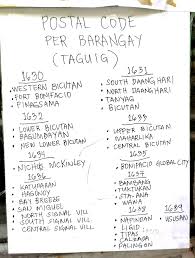 POSTAL CODE
PER BARANGAY
(TAGUIG)
1630
WESTERN BICUTAN
FORT BONIFACIO
PINAGSAMA
1632
LOWER BICUTAN
BAGUMBAYAN
NEW LOWER BICUTAN
1635
MCKINLEY
1636
KATUPARAN
HAGONOY
BAY BREEZE
SAN MIGUEL
NORTH SIGNAL VILL.
SOUTH SIGNAL VILL
CENTRAL SIGNAL VILL
1631
SOUTH DAANGHARI
NORTH DAANGHARI
TANYAG
BICUTAN
1633
UPPER BICUTAN
MAHARLIKA
CENTRAL BICUTAN
BONIFACIO GLOBAL CITY
1637
BAMBANG
TUKTUKAN
STA. ANA
WAWA
1638
NAPINDAN
LIGID
TIPAS
CALZADA
PALINGON
1639
USUSAN